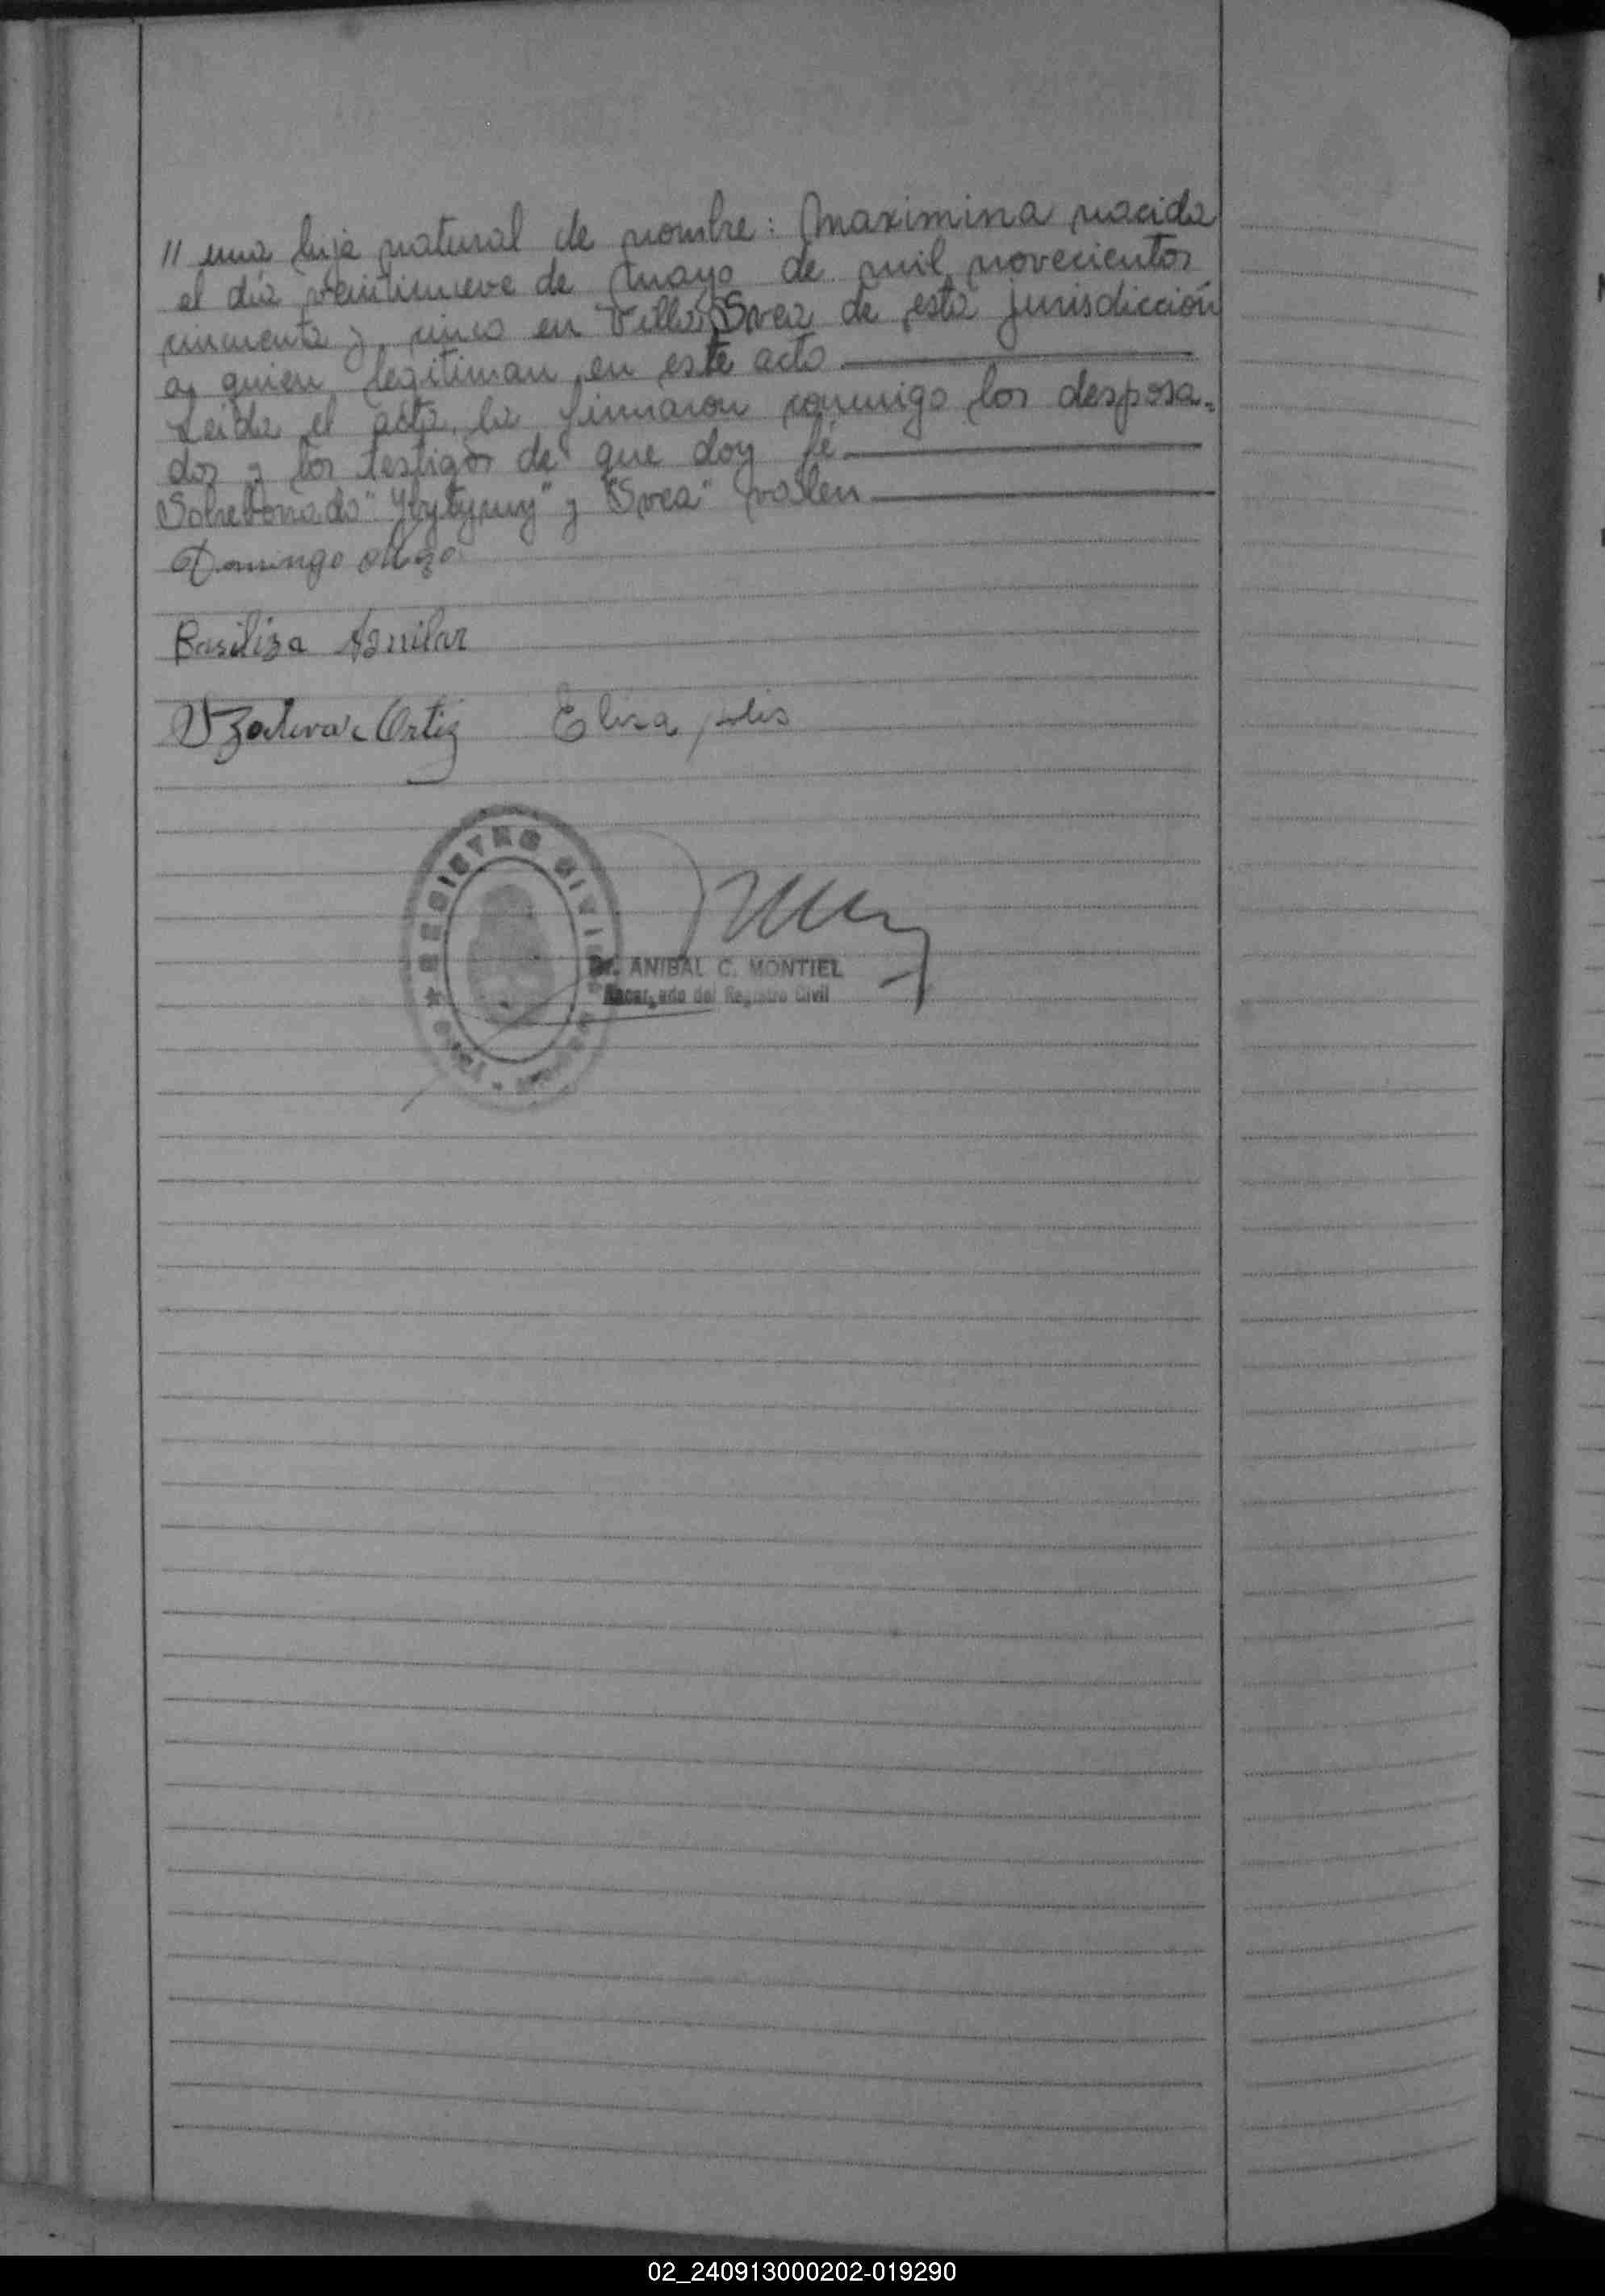 // una hija natural de nombre: Maximina nacida
el día veintinueve de Mayo de mil novecientos
cincuenta y cinco en Villa Svea de esta jurisdicción
a quien legitiman en este acto
Leída el acta, la firmaron conmigo los desposa-
dos y los testigos de que doy fé
Sobreborrado "Ybytymy" y "Svea" valen
Domingo
Basiliza Aguilar
Ortiz Elisa
REGISTRO CIVIL
Dr. ANIBAL C. MONTIEL
Encargado del Registro Civil
02_240913000202-019290